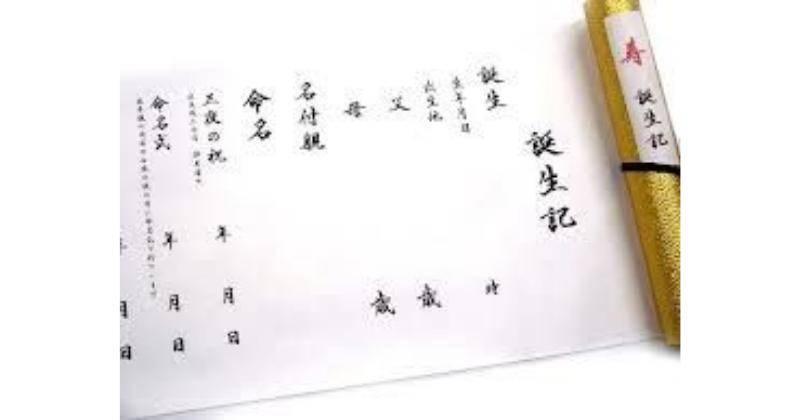 寿 誕生記
誕生記
誕生
生年月日 時
出生地
父 歳
母 歳
名付親
命名
三夜の祝 年 月 日
命名式 年 月 日
月 日